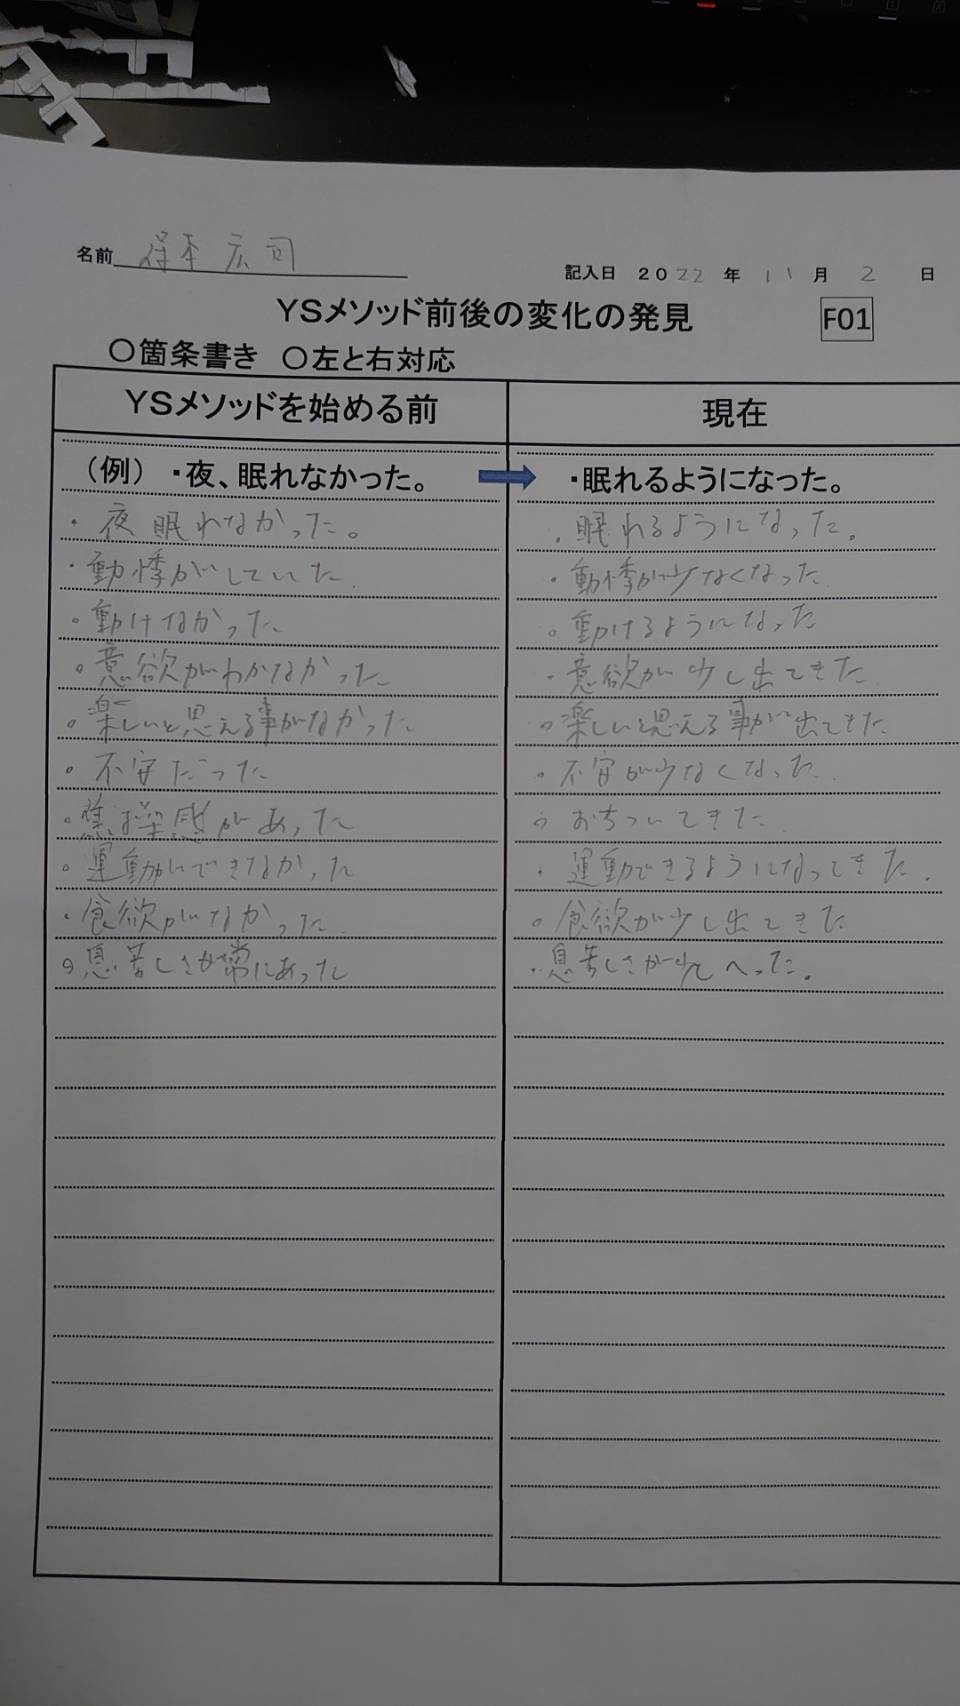 名前 保本 宏司
記入日 2022 年 11 月 2 日
YSメソッド前後の変化の発見 F01
○箇条書き ○左と右対応
YSメソッドを始める前 現在
(例) ・夜、眠れなかった。 ・眠れるようになった。
・夜眠れなかった。 ・眠れるようになった。
・動悸がしていた ・動悸が少なくなった
・動けなかった ・動けるようになった
・意欲がわかなかった ・意欲が少し出てきた
・楽しいと思える事がなかった ・楽しいと思える事が出てきた
・不安だった ・不安が少なくなった
・焦操感があった ・おちついてきた
・運動ができなかった ・運動できるようになってきた.
・食欲がなかった ・食欲が少し出てきた
・息苦しさが常にあった ・息苦しさが少しへった。